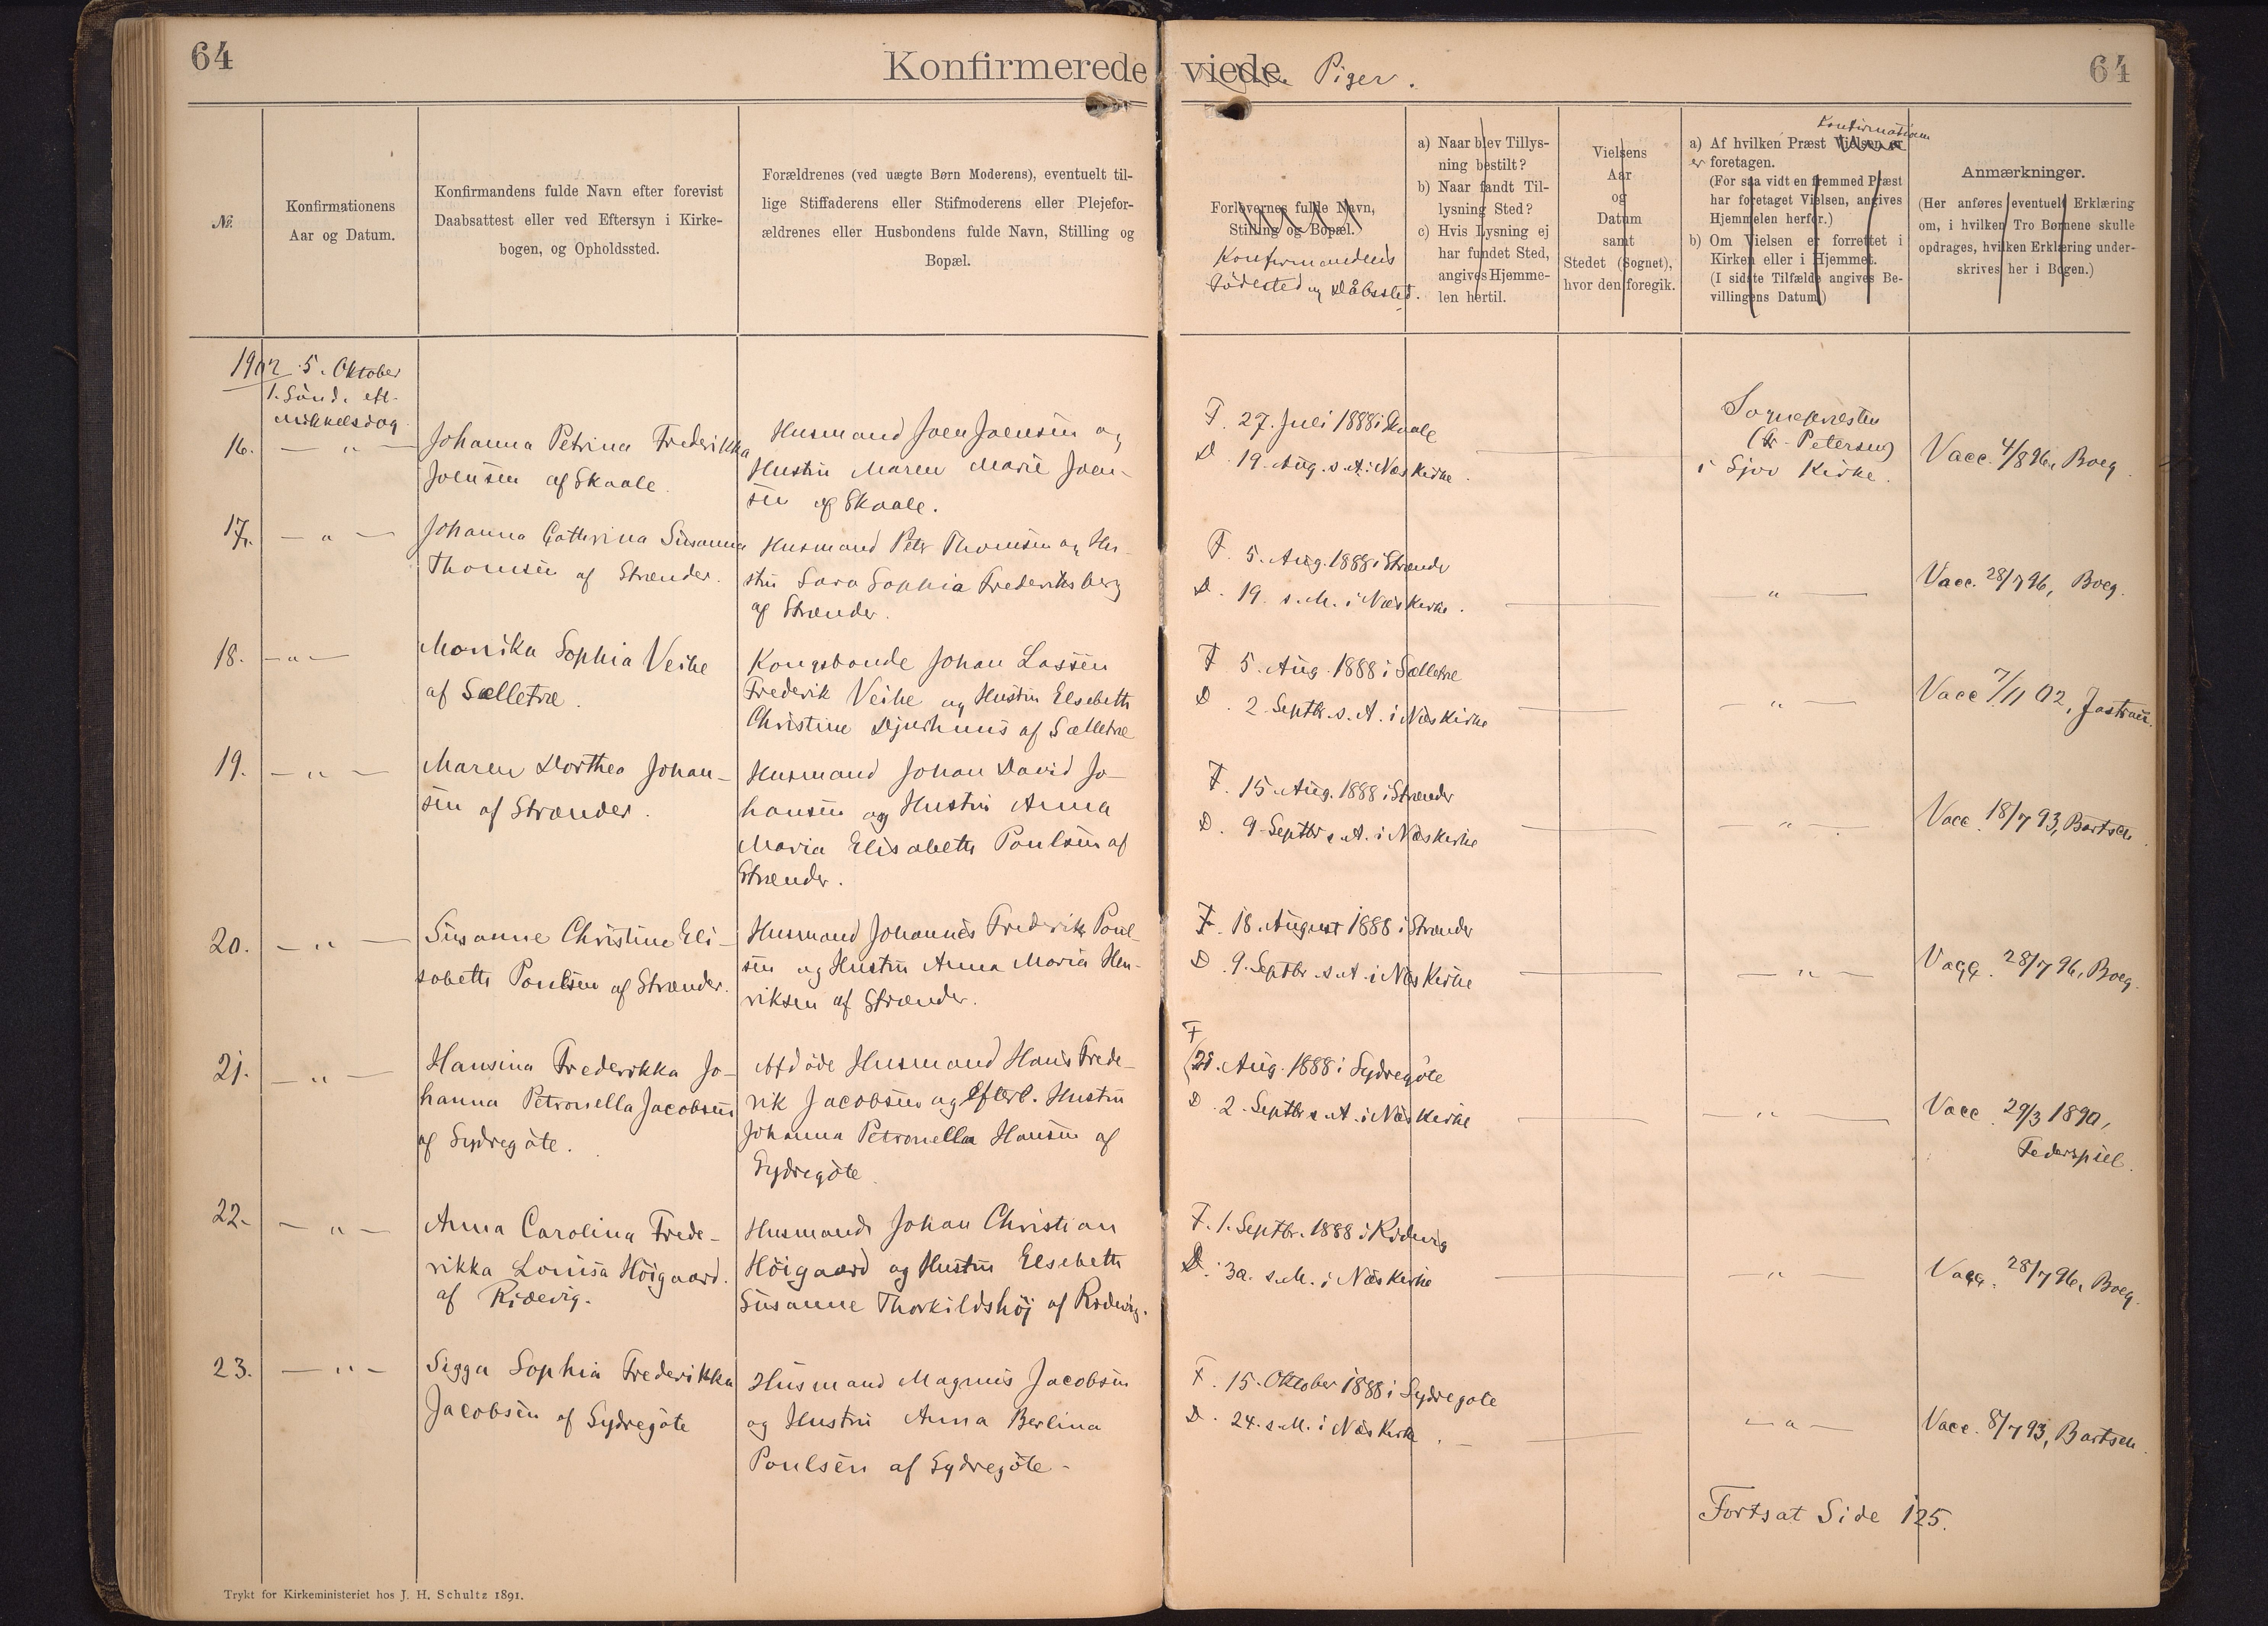 64
Konfirmerede
viede
Piger.
64
№
Konfirmationens
Aar og Datum.
Konfirmandens fulde Navn efter forevist
Daabsattest eller ved Eftersyn i Kirke-
bogen, og Opholdssted.
Forældrenes (ved uægte Børn Moderens), eventuelt til-
lige Stiffaderens eller Stifmoderens eller Plejefor-
ældrenes eller Husbondens fulde Navn, Stilling og
Bopæl.
Forlovernes fulde Navn,
Stilling og Bopæl.
Konfirmandens
Födested og Dåbssted.
a) Naar blev Tillys-
ning bestilt?
b) Naar fandt Til-
lysning Sted?
c) Hvis Lysning ej
har fundet Sted,
angives Hjemme-
len hertil.
Vielsens
Aar
og
Datum
samt
Stedet (Sognet),
hvor den foregik.
Konfirmationen
a) Af hvilken Præst Vielsen er
er foretagen.
(For saa vidt en fremmed Præst
har foretaget Vielsen, angives
Hjemmelen herfor.)
b) Om Vielsen er forrettet i
Kirken eller i Hjemmet.
(I sidste Tilfælde angives Be-
villingens Datum.)
Anmærkninger.
(Her anføres eventuelt Erklæring
om, i hvilken Tro Børnene skulle
opdrages, hvilken Erklæring under-
skrives her i Bogen.)
1902 5. Oktober
1. Sönd. eft.
Mikkelsdag
16. — " —
Johanna Petrina Frederikka
Joensen af Skaale.
Husmand Joen Joensen og
Hustru Maren Marie Joen-
sen af Skaale.
F. 27. Juli 1888 i Skaale
D. 19. Aug. s. A. i Næs Kirke.
Sognepræsten
(Petersen)
i Sjov Kirke.
Vacc. 4/8 96, Boeg.
17. — " —
Johanna Cathrina Susanna
Thomsen af Strænder.
Husmand Peter Thomsen og Hu-
stru Sara Sophia Frederiksberg
af Strænder.
F. 5. Aug. 1888 i Strænder
D. 19. s. M. i Næs Kirke.
— " —
Vacc. 28/7 96, Boeg.
18. — " —
Monika Sophia Veihe
af Sælletræ.
Kongsbonde Johan Lassen
Frederik Veihe og Hustru Elsebeth
Christine Djurhuus af Sælletræ
F 5. Aug. 1888 i Sælletræ
D. 2. Septbr. s. A. i Næs Kirke
— " —
Vacc 7/11 02, Jastrau.
19. — " —
Maren Dorthea Johan-
sen af Strænder.
Husmand Johan David Jo-
hansen og Hustru Anna
Maria Elisabeth Poulsen af
Strænder.
F. 15. Aug. 1888 i Strænder
D. 9. Septbr s. A. i Næs Kirke
— " —
Vacc. 18/7 93, Bartsch.
20. — " —
Susanne Christine Eli-
sabeth Poulsen af Strænder.
Husmand Johannes Frederik Poul-
sen og Hustru Anna Maria Hen-
riksen af Strænder.
F. 18. August 1888 i Strænder
D. 9. Septbr. s. A. i Næs Kirke
— " —
Vacc. 28/7 96, Boeg.
21. — " —
Hansina Frederikka Jo-
hanna Petronella Jacobsen
af Sydregöte.
Afdöde Husmand Hans Frede-
rik Jacobsen og Efterl. Hustru
Johanna Petronella Hansen af
Sydregöte.
F
Aug. 1888 i Sydregöte
D. 2. Septbr s. A. i Næs Kirke
— " —
Vacc. 29/3 1890,
Federspiel.
22. — " —
Anna Carolina Frede-
rikka Louisa Höigaard.
af Ridevig.
Husmand Johan Christian
Höigaard og Hustru Elsebeth
Susanne Thorkildshöj af Ridevig.
F. 1. Septbr. 1888 i Ridevig
D. 30. s. M. i Næs Kirke
— " —
Vacc. 28/7 96, Boeg.
23. — " —
Sigga Sophia Frederikka
Jacobsen af Sydregöte
Husmand Magnus Jacobsen
og Hustru Anna Berlina
Poulsen af Sydregöte.
F. 15. Oktober 1888 i Sydregöte
D. 24. s. M. i Næs Kirke.
— " —
Vacc. 8/7 93, Bartsch.
Fortsat Side 125.
Trykt for Kirkeministeriet hos J. H. Schultz 1891.